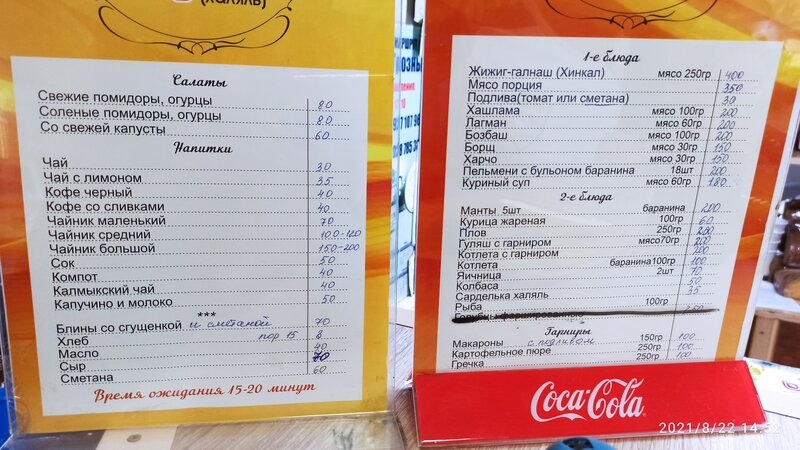 (ХАЛЯЛЬ)
Салаты
Свежие помидоры, огурцы 80
Соленые помидоры, огурцы 80
Со свежей капусты 60
Напитки
Чай 30
Чай с лимоном 35
Кофе черный 40
Кофе со сливками 40
Чайник маленький 70
Чайник средний 100-120
Чайник большой 150-200
Сок 50
Компот 40
Калмыкский чай 40
Капучино и молоко 50
***
Блины со сгущенкой и сметаной 70
Хлеб пор 15 8
Масло 40
Сыр 70
Сметана 60
Время ожидания 15-20 минут
1-е блюда
Жижиг-галнаш (Хинкал) мясо 250гр 400
Мясо порция 350
Подлива(томат или сметана) 30
Хашлама мясо 100гр 200
Лагман мясо 60гр 200
Бозбаш мясо 100гр 200
Борщ мясо 30гр 150
Харчо мясо 30гр 150
Пельмени с бульоном баранина 18шт 200
Куриный суп мясо 60гр 180
2-е блюда
Манты 5шт баранина 200
Курица жареная 100гр 60
Плов 250гр 200
Гуляш с гарниром мясо70гр 200
Котлета с гарниром 200
Котлета баранина100гр 100
Яичница 2шт 70
Колбаса 50
Сарделька халяль 35
Рыба 100гр
Гарниры
Макароны с подливом 150гр 100
Картофельное пюре 250гр 100
Гречка 250гр 100
Coca-Cola
2021/8/22 14:52